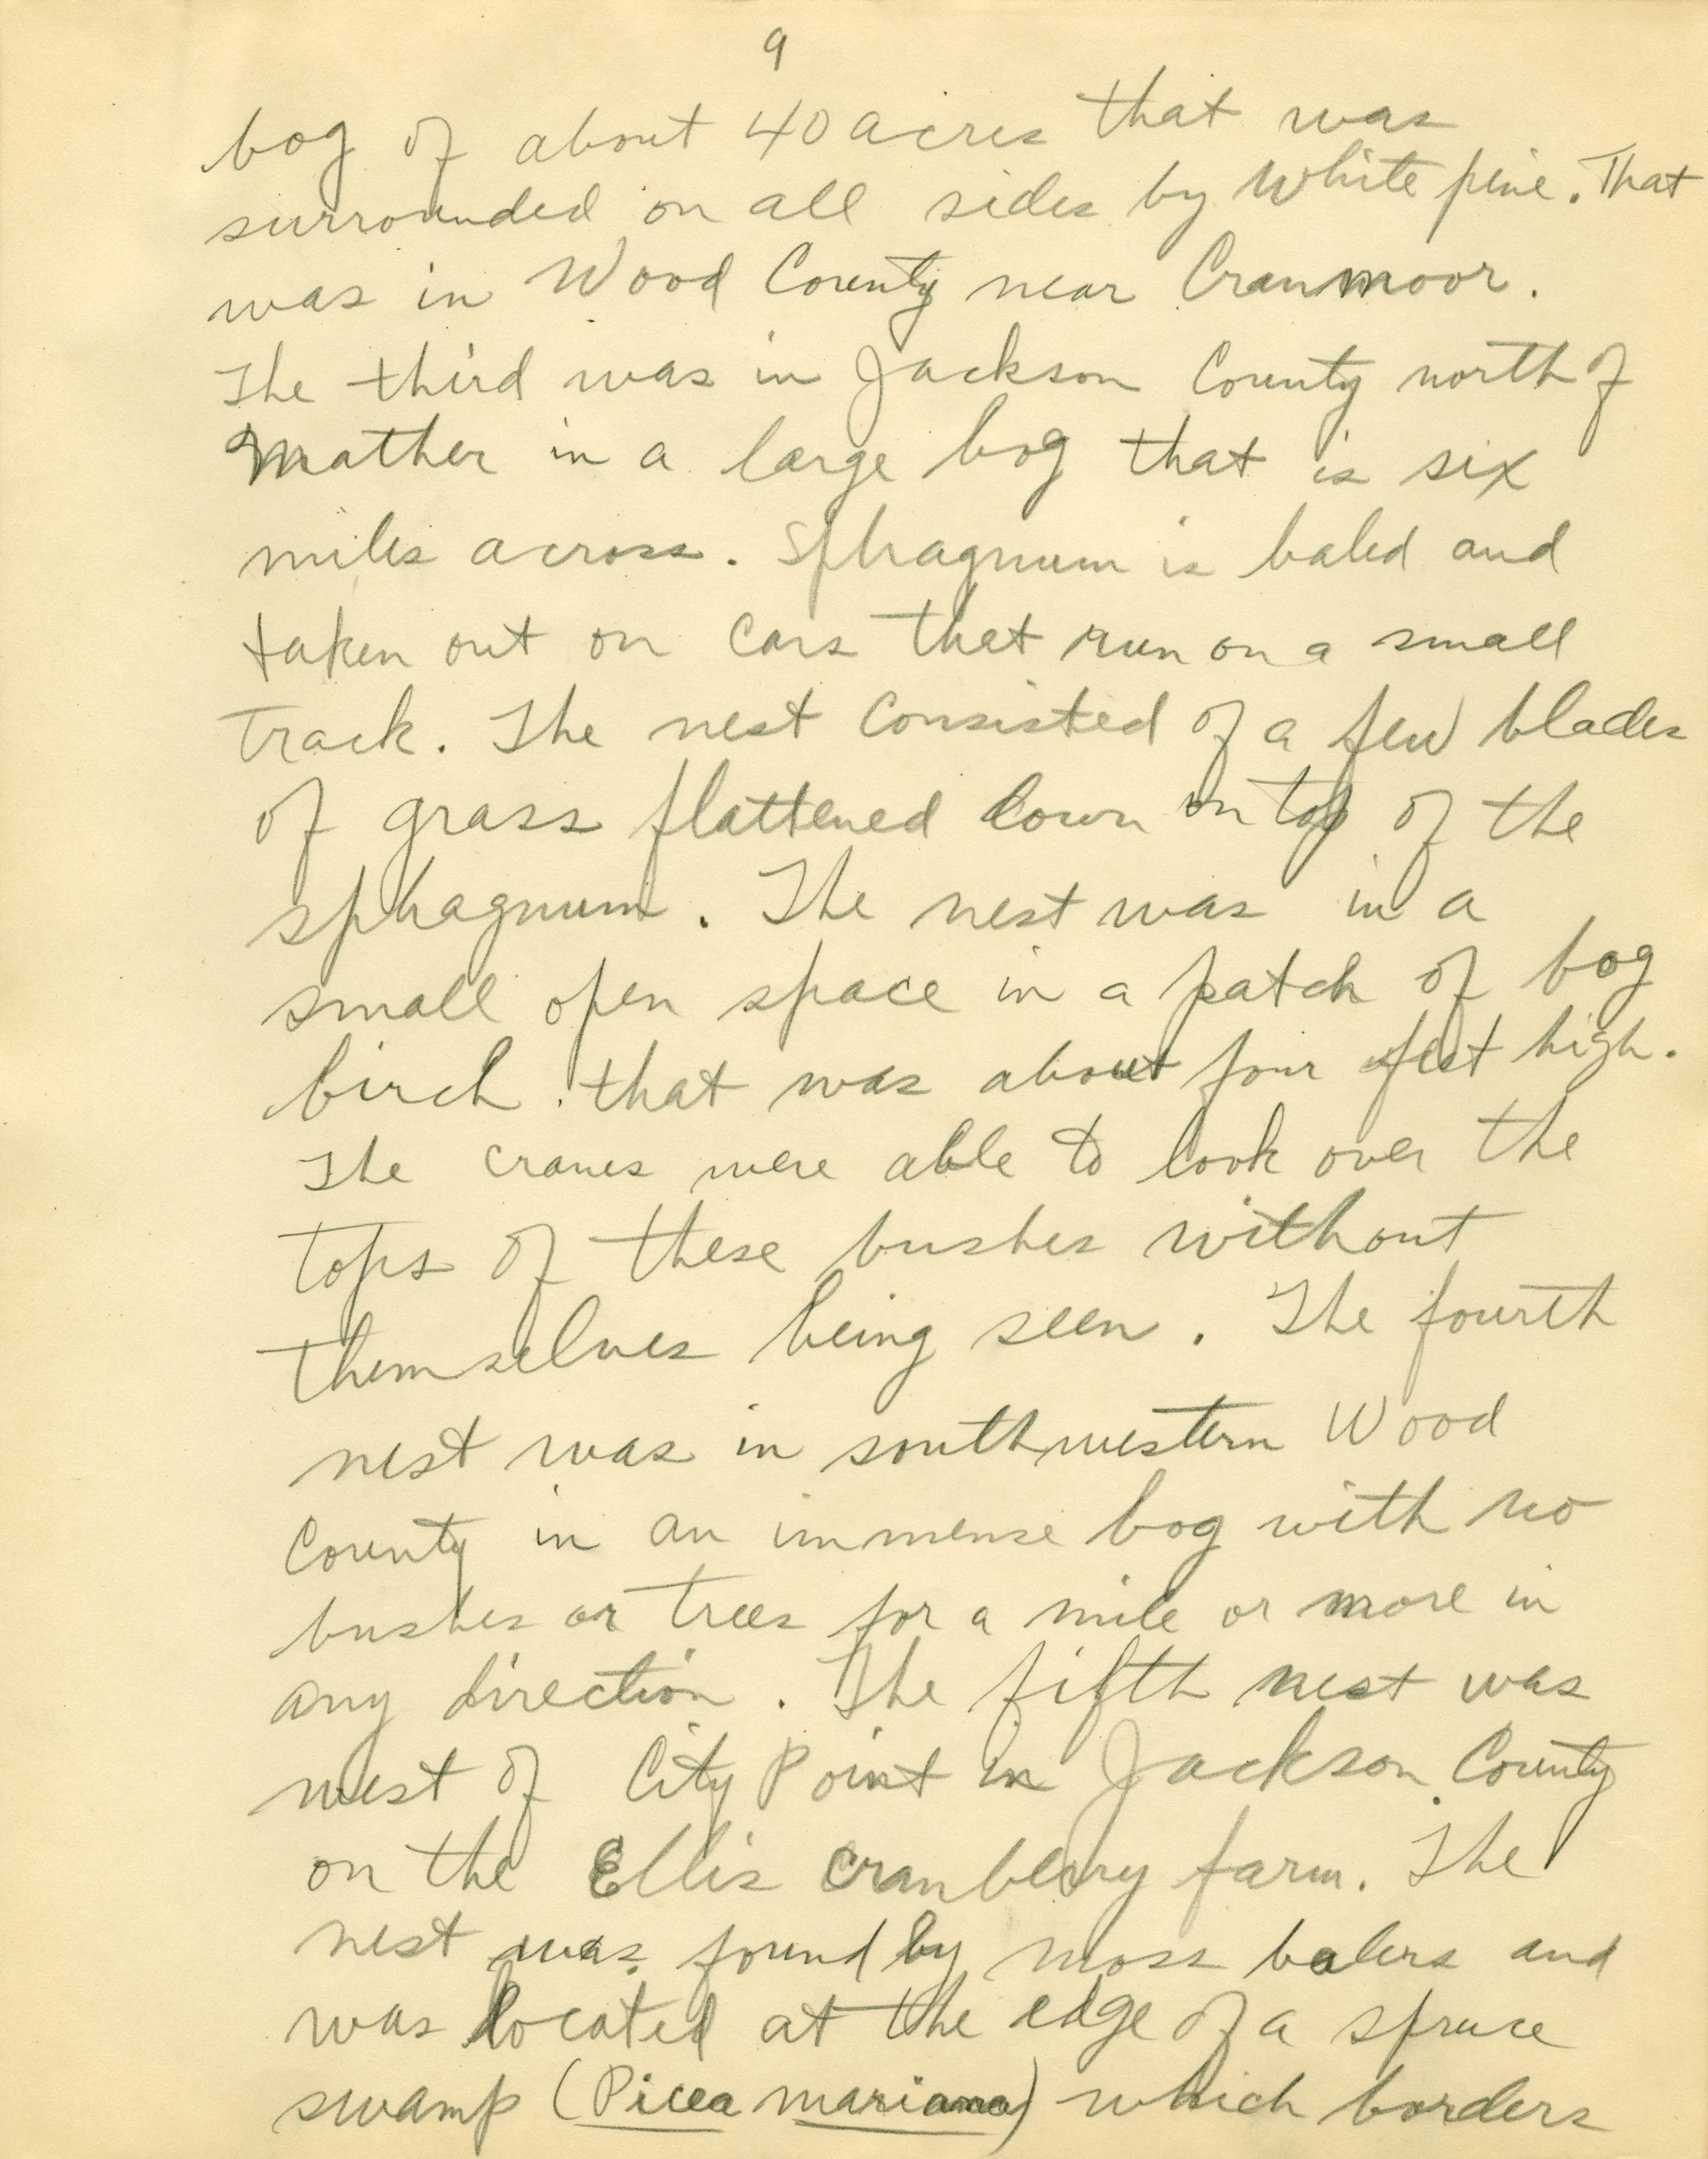 9
bog of about 40 acres that was
surrounded on all sides by White pine. That
was in Wood County near Cranmoor.
The third was in Jackson County north of
Mather in a large bog that is six
miles across. Sphagnum is baled and
taken out on cars that run on a small
track. The nest consisted of a few blades
of grass flattened down on top of the
sphagnum. The nest was in a
small open space in a patch of bog
birch that was about four feet high.
The cranes were able to look over the
tops of these bushes without
themselves being seen. The fourth
nest was in southwestern Wood
County in an immense bog with no
bushes or trees for a mile or more in
any direction. The fifth nest was
west of City Point in Jackson County
on the Ellis cranberry farm. The
nest was found by moss balers and
was located at the edge of a spruce
swamp (Picea mariana) which borders